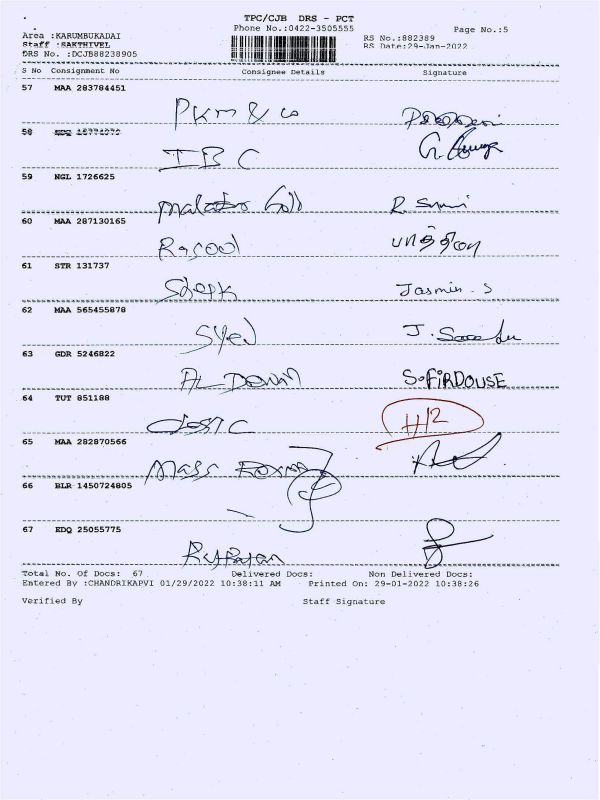 TPC/CJB DRS - PCT
Phone No.:0422-3505555
Page No.:5
Area :KARUMBUKADAI
RS No.:882389
Staff :SAKTHIVEL
RS Date:29-Jan-2022
DRS No. :DCJB88238905
S No Consignment No Consignee Details Signature
57 MAA 283784451
PKM & Co
58
IBC
59 NGL 1726625
R. 
60 MAA 287130165
Rasool பாத்திமா
61 STR 131737
Jasmin. S
62 MAA 565455878
Syed J.
63 GDR 5246822
AL S. FiRDOUSE
64 TUT 851188
H/2
65 MAA 282870566
Mass
66 BLR 1450724805
67 EDQ 25055775
Total No. Of Docs: 67 Delivered Docs: Non Delivered Docs:
Entered By :CHANDRIKAPVI 01/29/2022 10:38:11 AM Printed On: 29-01-2022 10:38:26
Verified By Staff Signature